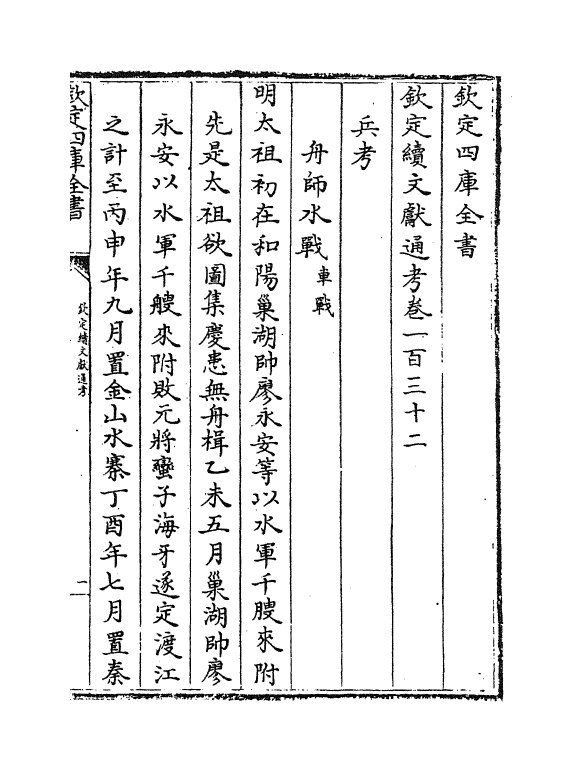 欽定四庫全書
欽定續文獻通考卷一百三十二
兵考
舟師水戰車戰
明太祖初在和陽巢湖帥廖永安等以水軍千艘來附
先是太祖欲圖集慶患無舟楫乙未五月巢湖帥廖
永安以水軍千艘來附敗元將蠻子海牙遂定渡江
之計至丙申年九月置金山水寨丁酉年七月置秦
欽定四庫全書
欽定續文獻通考
一